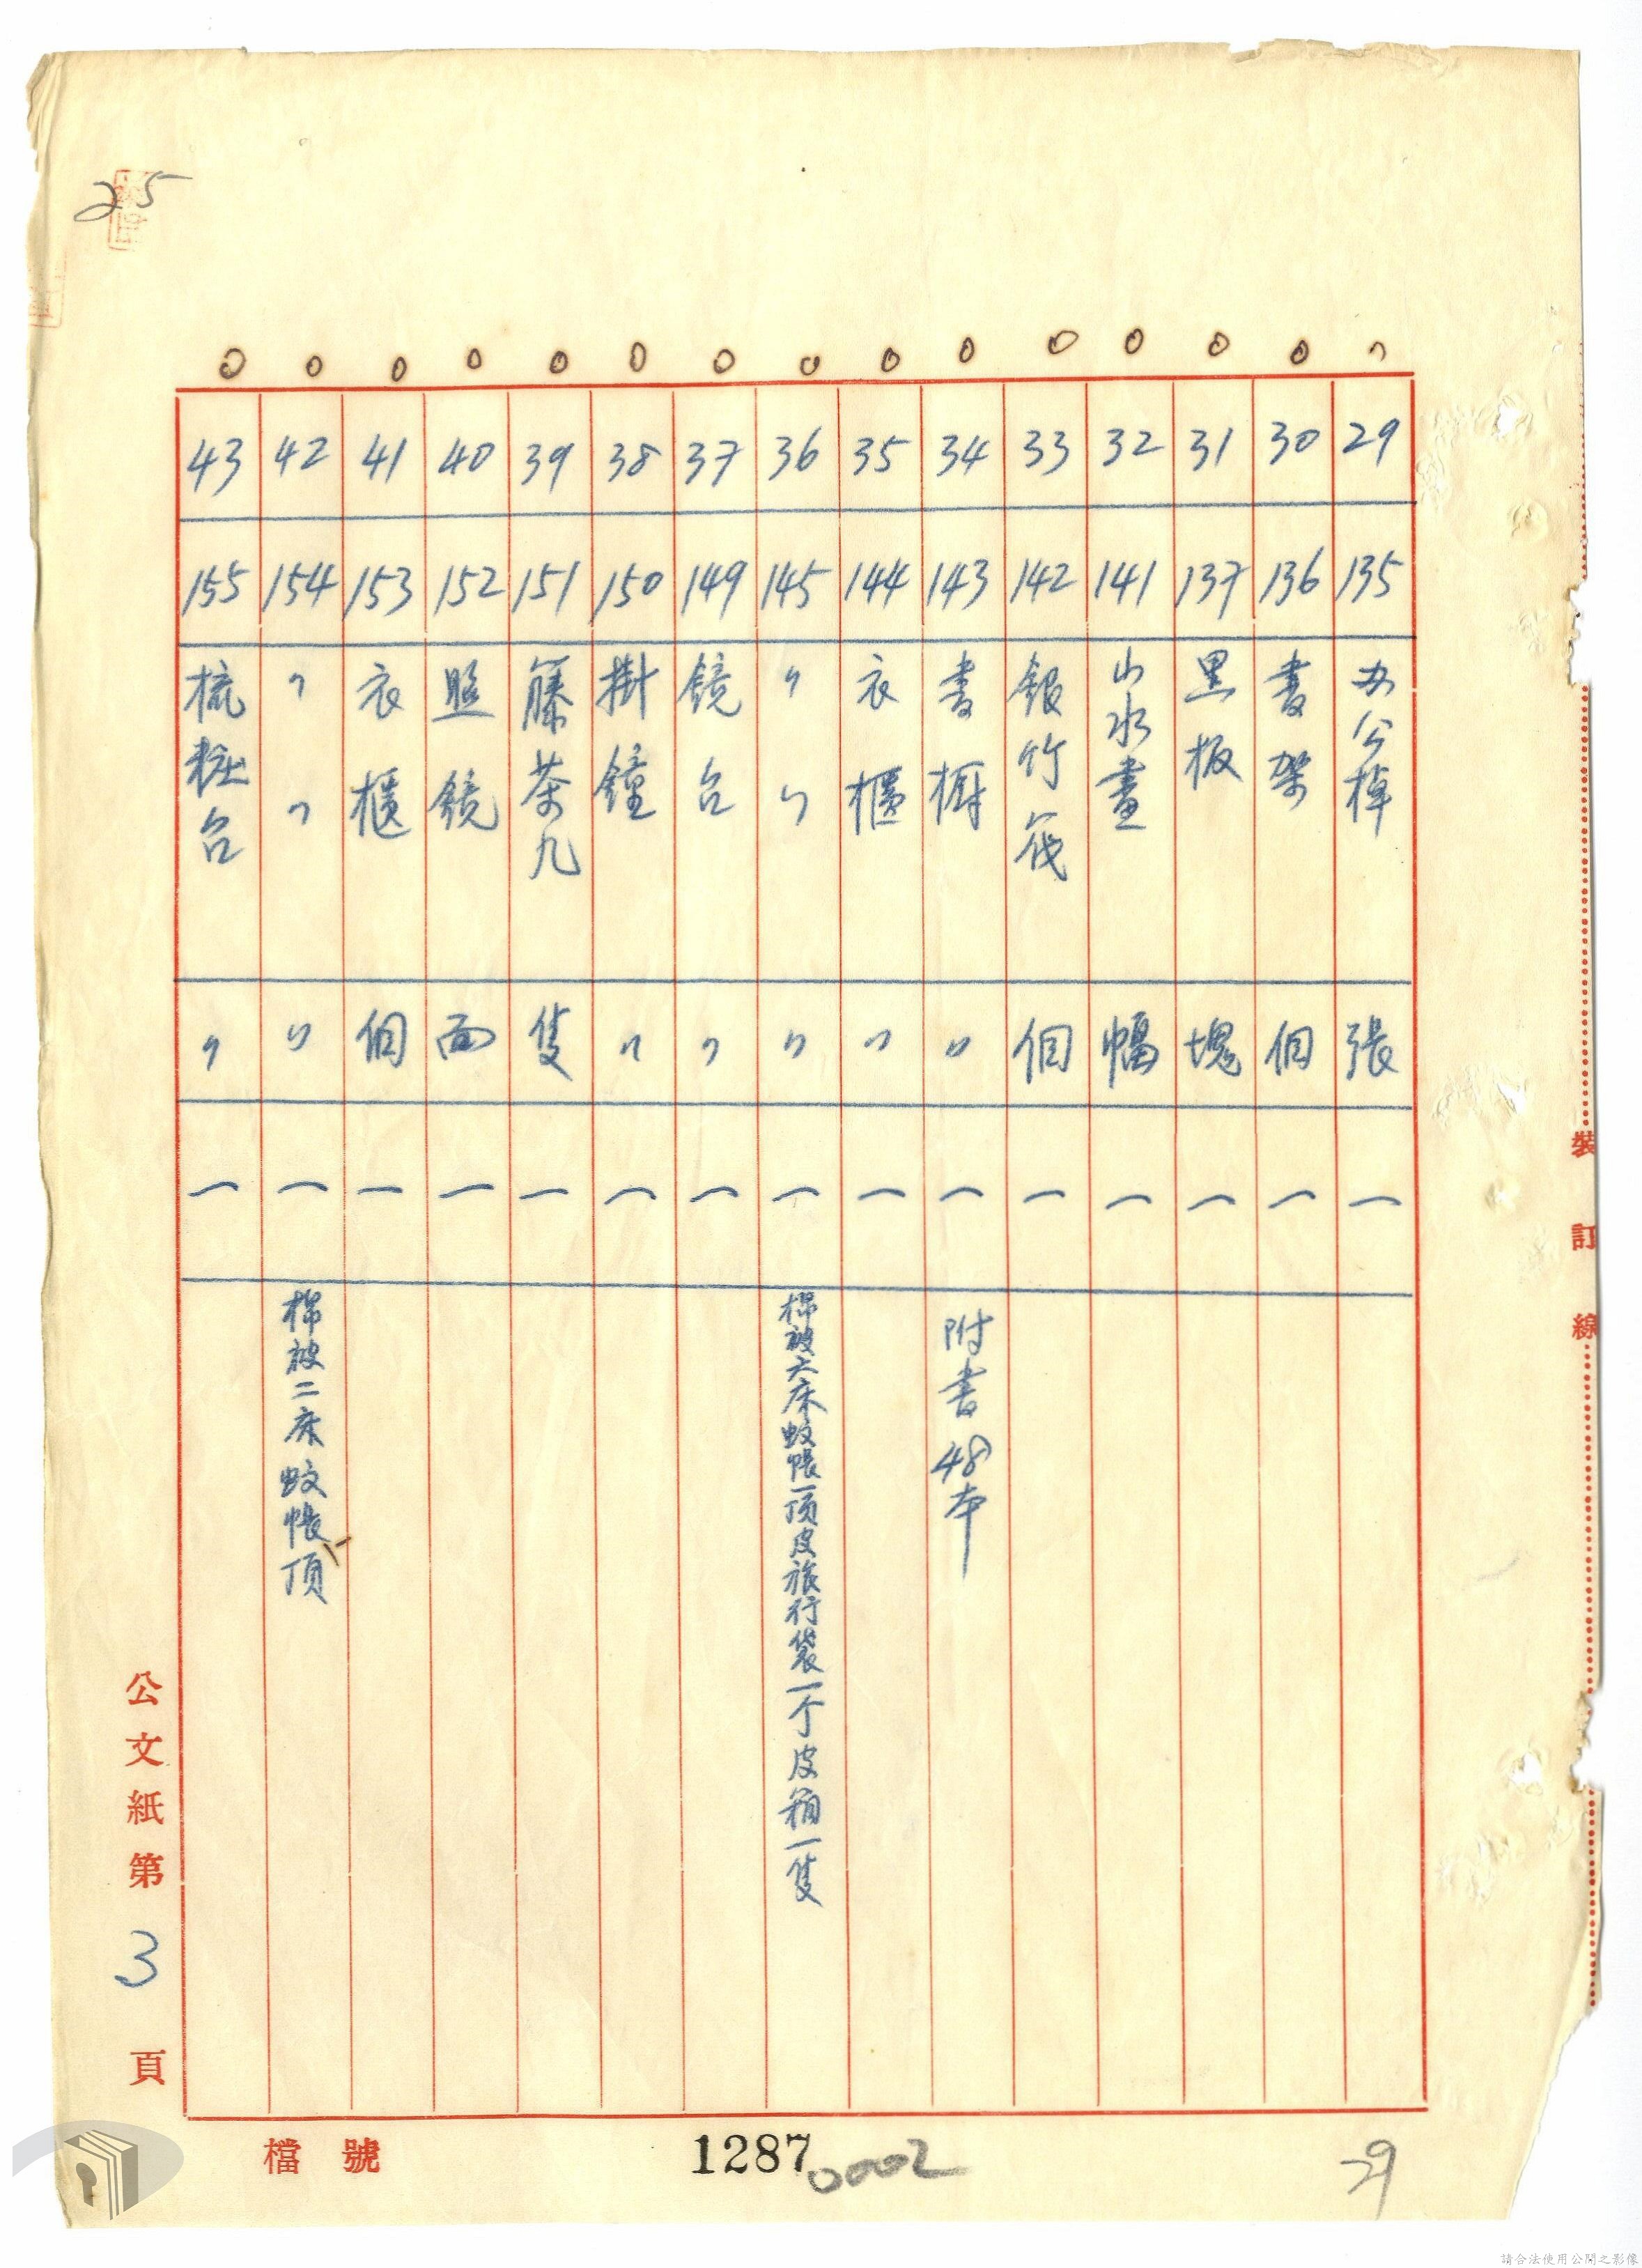 25
29 135 办公棹 張 一
30 136 書架 個 一
31 137 黑板 塊 一
32 141 山水畫 幅 一
33 142 銀竹筏 個 一
34 143 書櫥 〃 一 附書48本
35 144 衣櫃 〃 一
36 145 〃 〃 〃 一 棉被六床蚊帳一顶皮旅行袋一个皮箱一隻
37 149 镜台 〃 一
38 150 掛鐘 〃 一
39 151 籐茶几 隻 一
40 152 照鏡 面 一
41 153 衣櫃 個 一
42 154 〃 〃 〃 一 棉被二床蚊帳一頂
43 155 梳粧台 〃 一
裝訂線
公文紙第3頁
檔號
1287
0002
29
請合法使用公開之影像